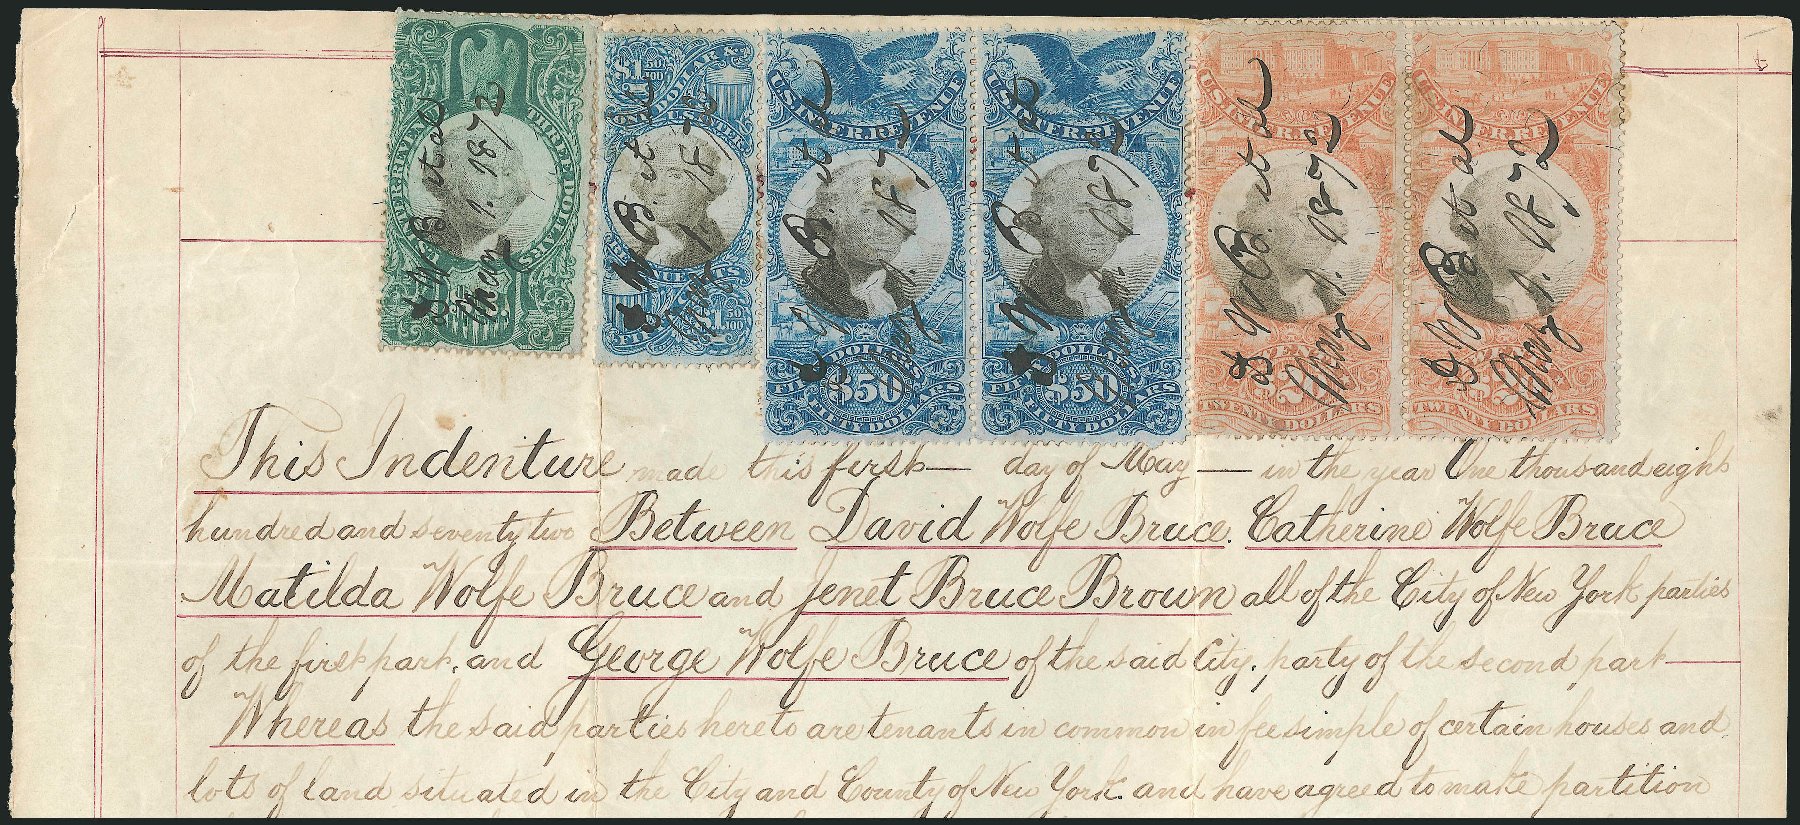 U.S. INTER. REVENUE THREE DOLLARS
$1 50/100 DOLLAR &
U.S. INTER.
$1 50/100
U.S. INTER. REVENUE
DOLLARS
$50
FIFTY DOLLARS
U.S. INTER. REVENUE
DOLLARS
$50
FIFTY DOLLARS
U.S. INTER. REVENUE
TWENTY DOLLARS
U.S. INTER. REVENUE
TWENTY DOLLARS
W B. et al
May 1. 1872
W B. et al
May 1. 1872
W B. et al
May 1. 1872
W B. et al
May 1. 1872
W B. et al
May 1. 1872
W B. et al
May 1. 1872
This Indenture made this first— day of May — in the year One thousand eight
hundred and seventy two Between David Wolfe Bruce. Catherine Wolfe Bruce
Matilda Wolfe Bruce and Jenet Bruce Brown all of the City of New York parties
of the first part, and George Wolfe Bruce of the said City, party of the second part—
Whereas the said parties hereto are tenants in common in fee simple of certain houses and
lots of land situated in the City and County of New York. and have agreed to make partition